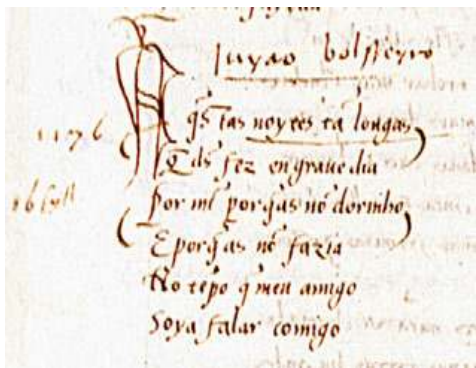 Iuyão bolsseyro
1176
Aq̃stas noytes tã longas
q̃ ds̃ fez en graue dia
por mĩ porq̃as nõ dormho
E porq̃as nõ fazia
No tẽpo q̃ meu amigo
Soya falar comigo